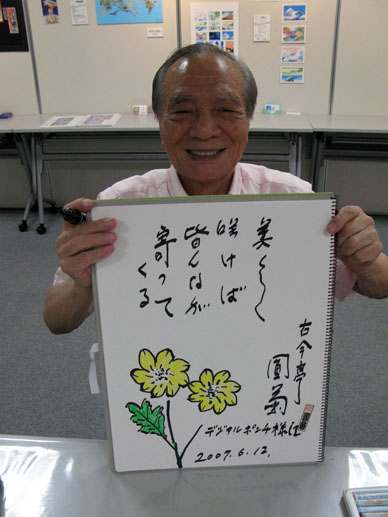 美しく
咲けば
皆んなが
寄って
くる
古今亭
圓菊
デジタルポンチ様江
2007.6.12.